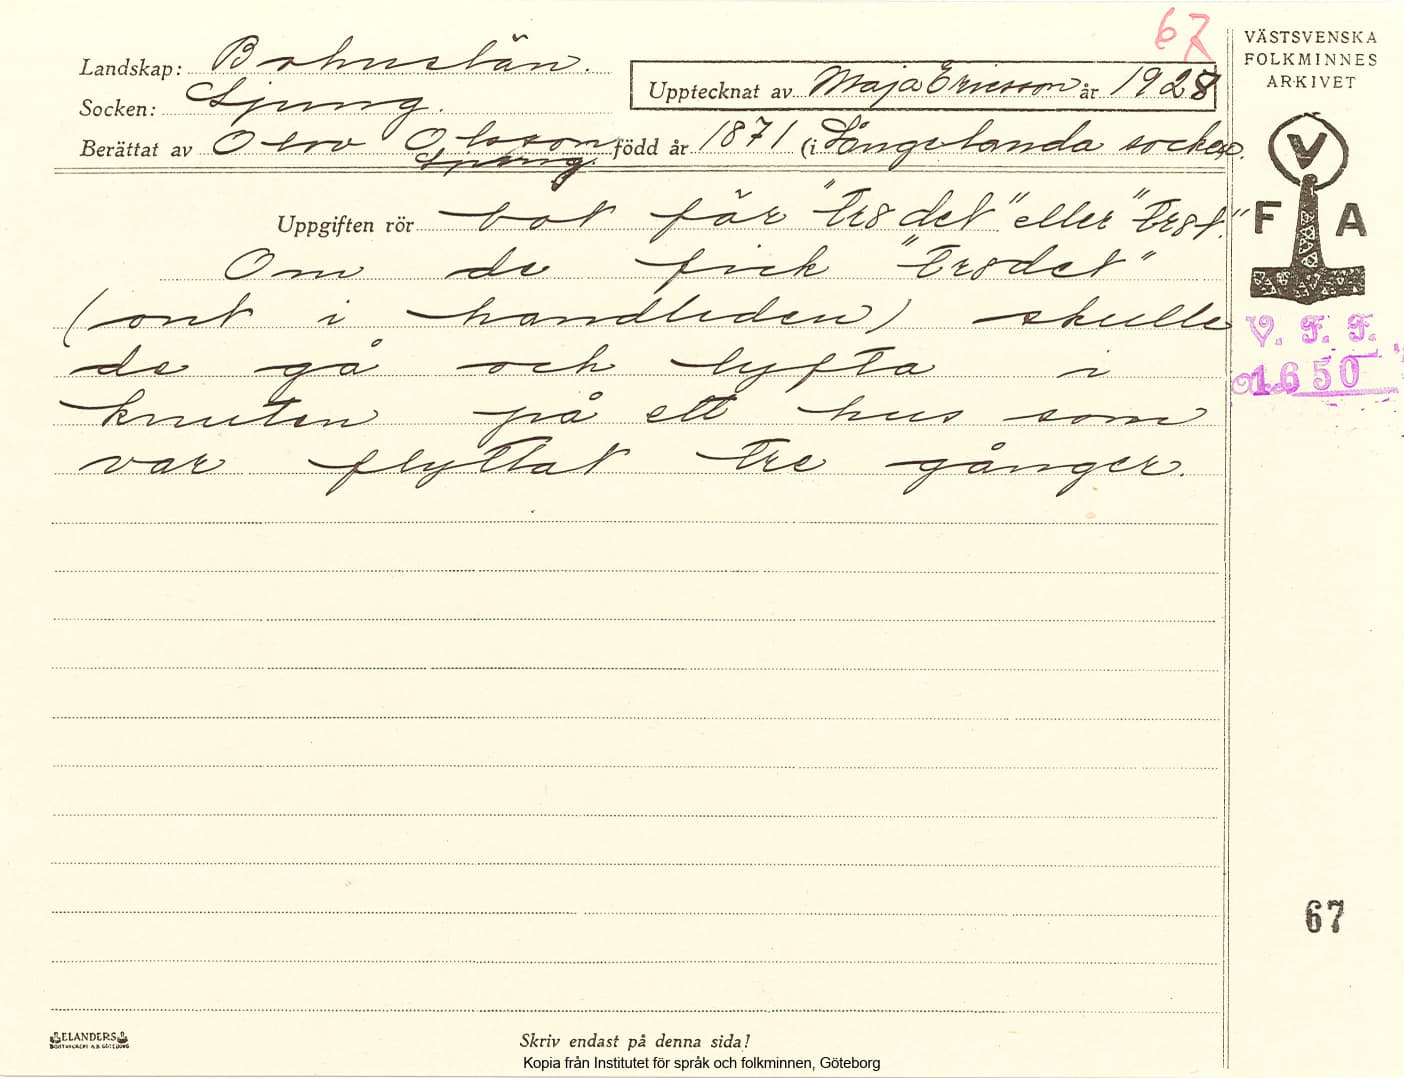 67
VÄSTSVENSKA
FOLKMINNES
ARKIVET
Landskap: Bohuslän.
Socken: Ljung.
Upptecknat av Maja Ericsson år 1928
Berättat av Olov Olsson född år 1871 (i Långelanda socken.
Ljung.
V
F A
Uppgiften rör bot för "trsdet" eller "trst."
Om de fick "trsdet"
(ont i handleden) skulle
de gå och lyfta i
knuten på ett hus som
var flyttat tre gånger.
V. F. F.
1650
67
ELANDERS
Skriv endast på denna sida!
Kopia från Institutet för språk och folkminnen, Göteborg